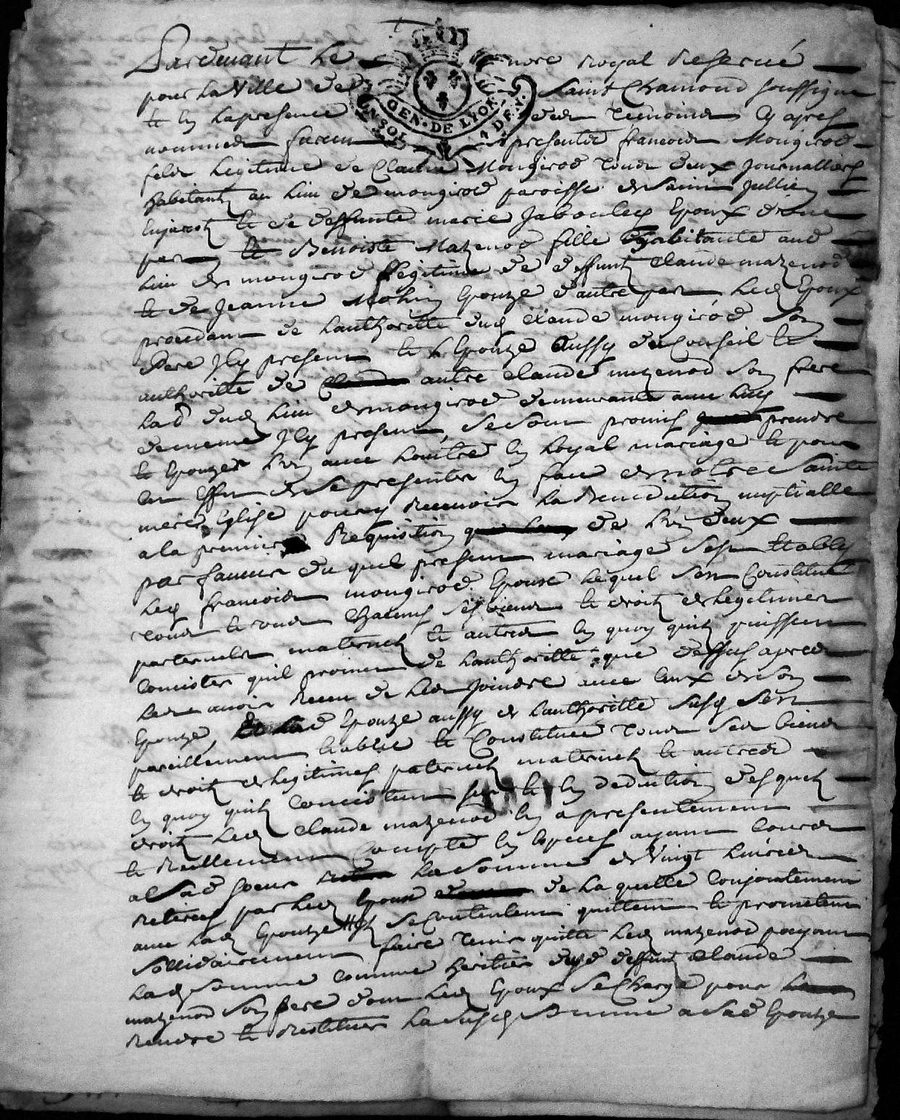 Pardevant le nore Royal Reservé
pour la Ville de Saint Chamond soussigné
et en la presence des temoins cy apres
GEN. DE LYON
UN SOL 4 DEN.
nommés furent presents francois Mongirod
fils legitime de Claude Mongirod tous deux Journalliers
habitants au lieu de mongirod paroisse de Saint Jullien
Enjarest et de deffunte marie Jabouley Epoux d'une
part et Benoiste Mazenod fille habitante aud
lieu de mongirod legitime de deffunt Claude mazenod
et de Jeanne Epouze d'autre part Lesd Epoux
procedant de lauthorité dud Claude mongirod son
pere Icy present et l'Epouze aussy de Conseil et
authorité de autre Claude mazenod son frere
lad dud lieu de mongirod demeurante avec luy
de meme Icy present se sont promis prendre
et Epouzer l'un avec l'autre en loyal mariage et pour
cet effet de se presenter en face de notre Sainte
mere Eglise pour y Recevoir la Benediction nuptialle
a la premiere Requisition de l'un deux
par faveur du quel present mariage sest Etably
Led francois mongirod Epoux lequel sest Constitué
tous et touts chacuns ses biens et droits de legitimes
paternels maternels et autres en quoy quils puissent
Concister quil promet de lauthorité que dessus apres
les avoir Receu de les joindre avec ceux de son
Epouze, lad Epouze aussy de lauthorité susd sest
pareillement Etablie et Constitué tous ses biens
et droits de legitimes paternels maternels et autres
en quoy quils concistent et en deduction desquels
droits led Claude mazenod en a presentement
et Reellement Compté en Especes ayant Cours
a Sad soeur La somme de Vingt livres
Retirées par led Epoux de la quelle conjointement
avec lad Epouze se Contentent quittent et promettent
Sollidairement faire tenir quitte led mazenod payant
lad somme comme heritier dud deffunt Claude
mazenod son pere dont led Epoux se charge pour
Rendre et Restituer la susd somme a sad Epouze